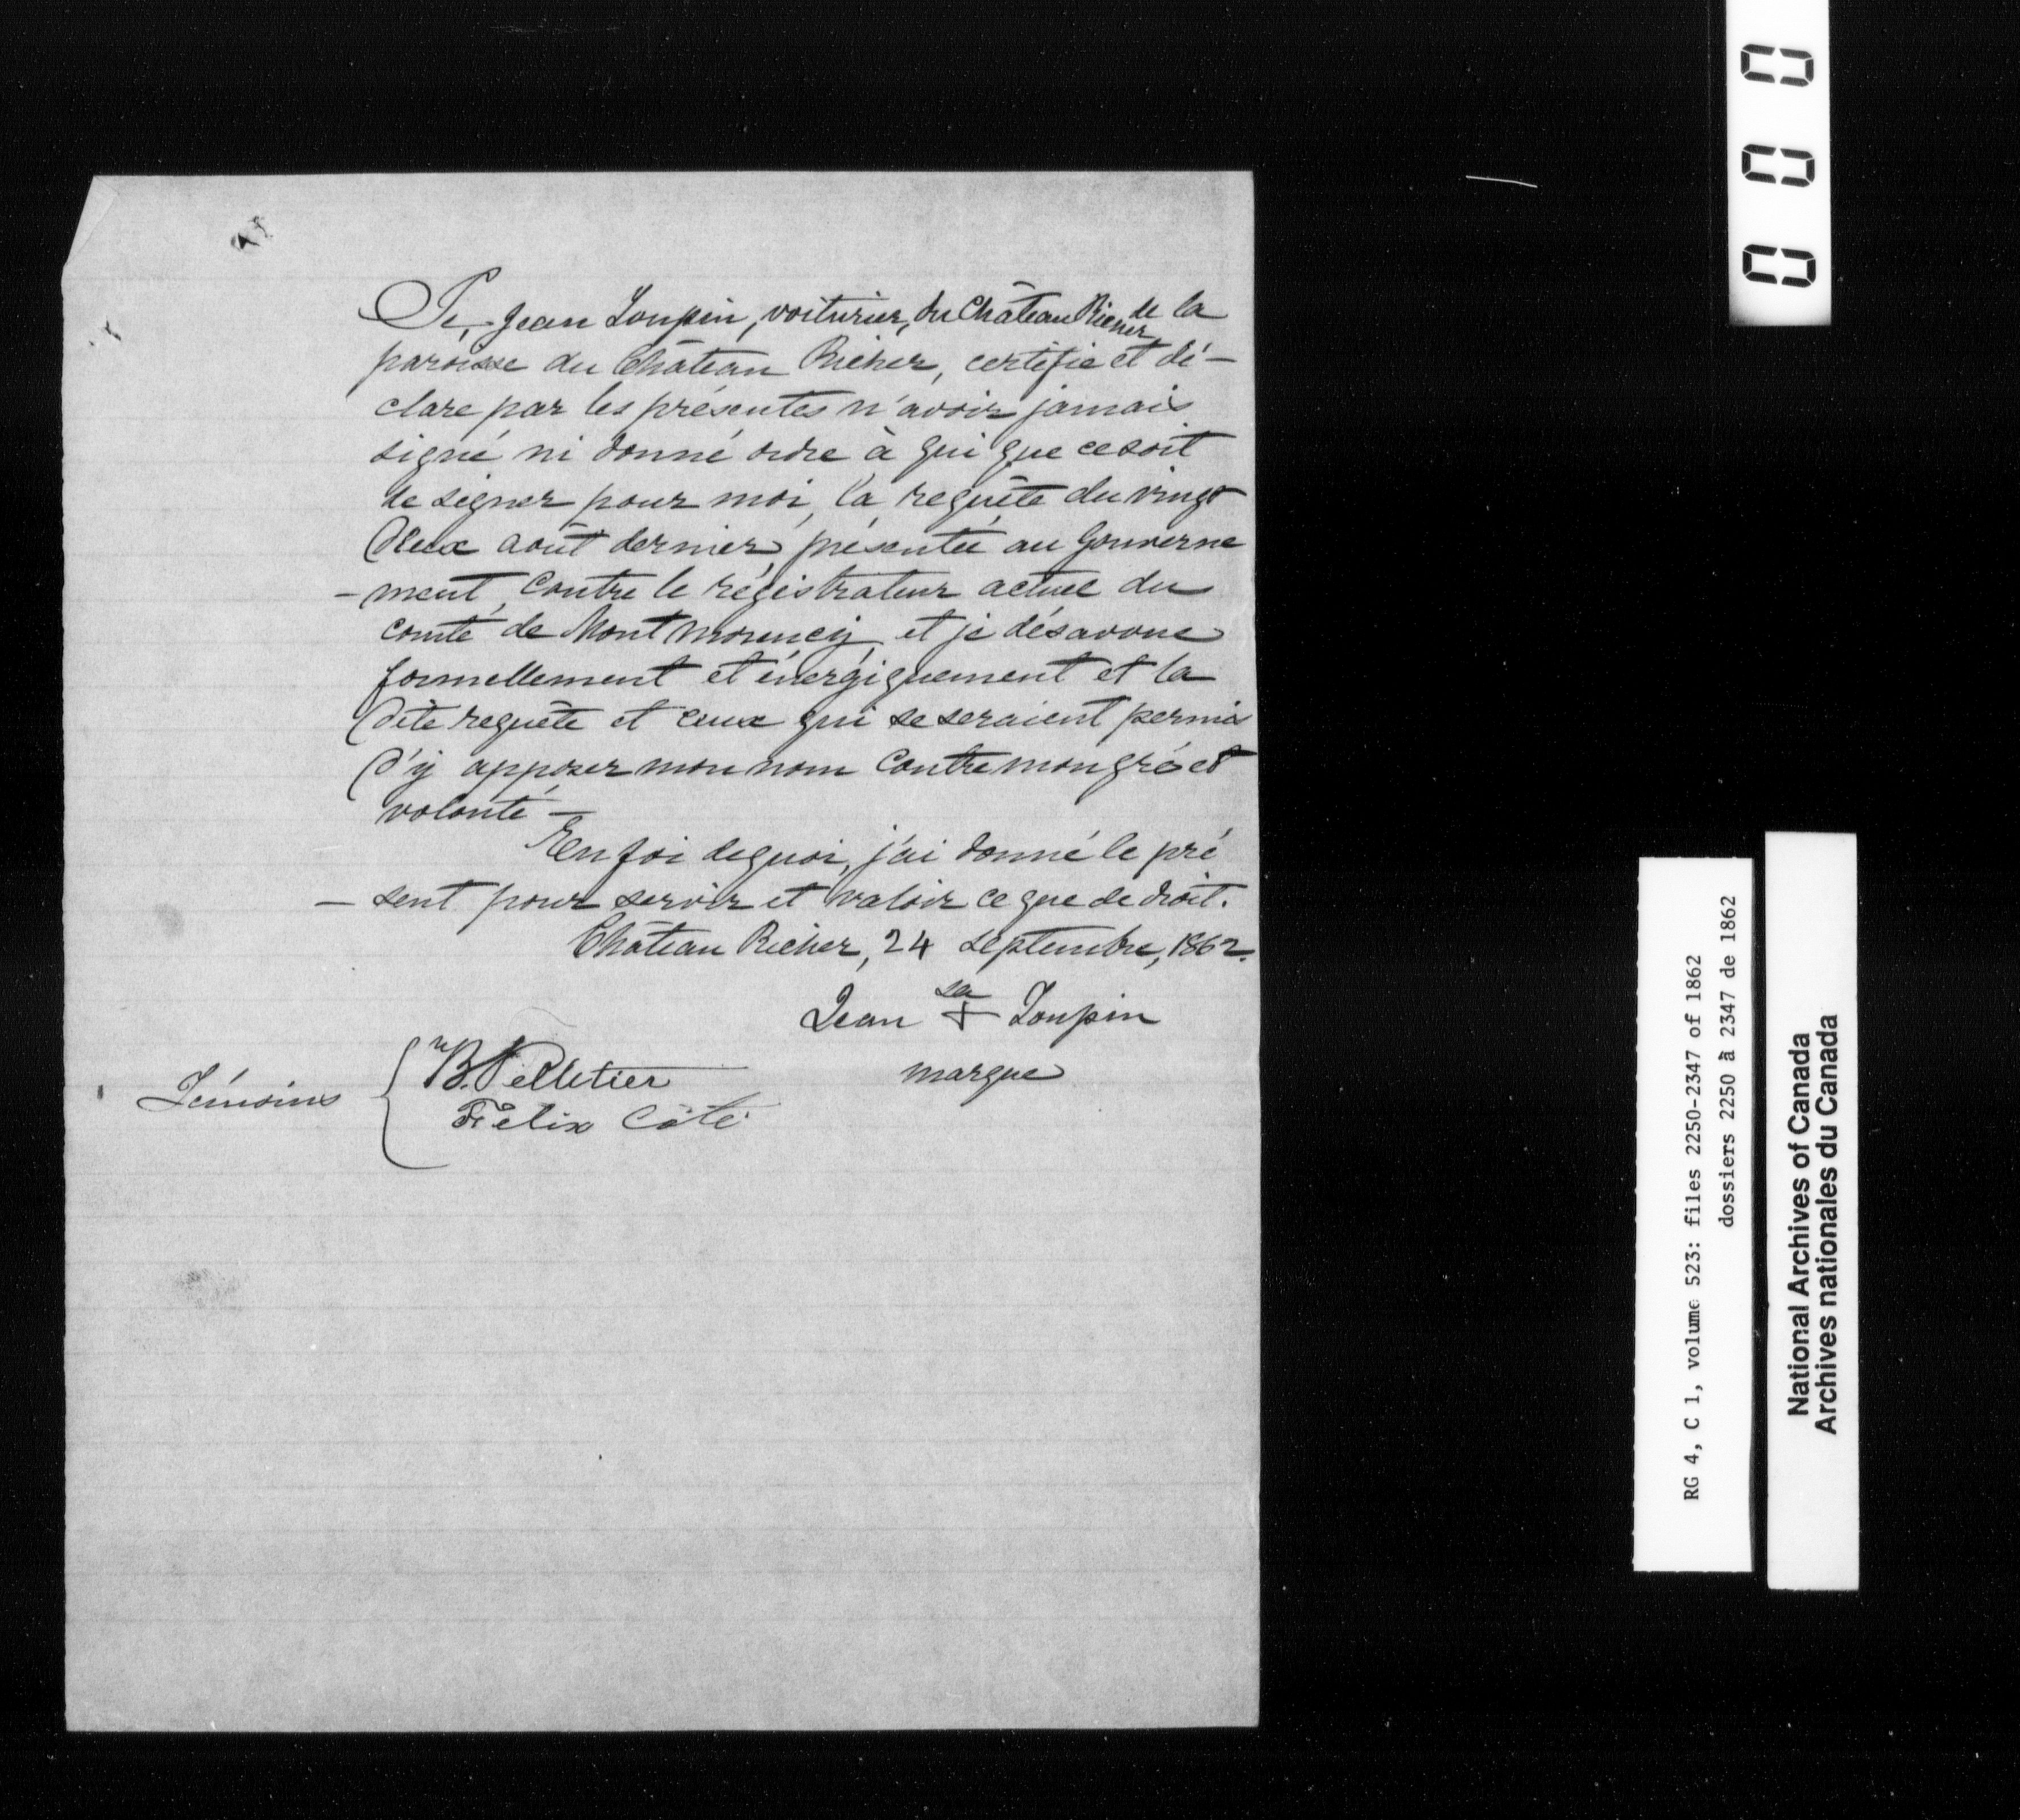 Je, Jean Toupin, voiturier, du Château Richer de la
paroisse du Château Richer, certifie et dé-
clare par les présentes n'avoir jamais
signé ni donné ordre à qui que ce soit
de signer pour moi, la requête du vingt
deux août dernier, présentée au Gouverne
-ment, contre le régistrateur actuel du
comté de Montmorency, et je désavoue
formellement et énergiquement et la
dite requête et ceux qui se seraient permis
d'y apposer mon nom contre mon gré et
volonté —
En foi de quoi, j'ai donné le pré
- sent pour servir et valoir ce que de droit.
Château Richer, 24 septembre, 1862.
sa
Jean + Toupin
marque
Témoins { B. Pelletier
Félix Côté
0 0 0
RG 4, C 1, volume 523: files 2250-2347 of 1862
dossiers 2250 à 2347 de 1862
National Archives of Canada
Archives nationales du Canada